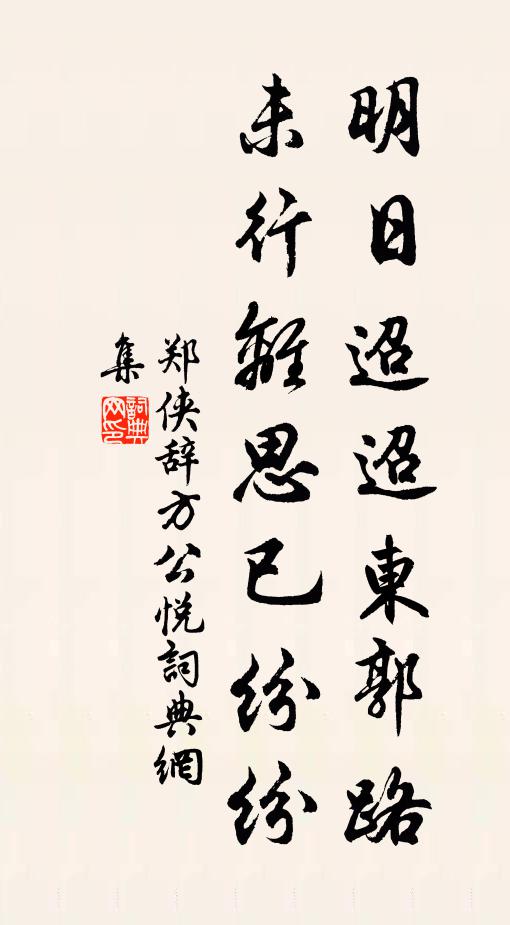 明日迢迢東郭路
未行離思已紛紛
郑侠辞方公悦詞典網
集
詞典網印